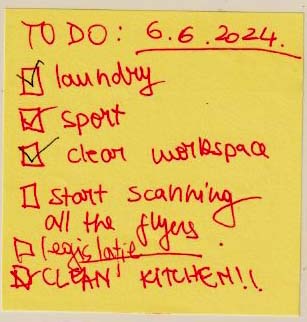 TO DO: 6.6.2024.
laundry
sport
clear workspace
start scanning
all the flyers
legislatie
CLEAN KITCHEN!!